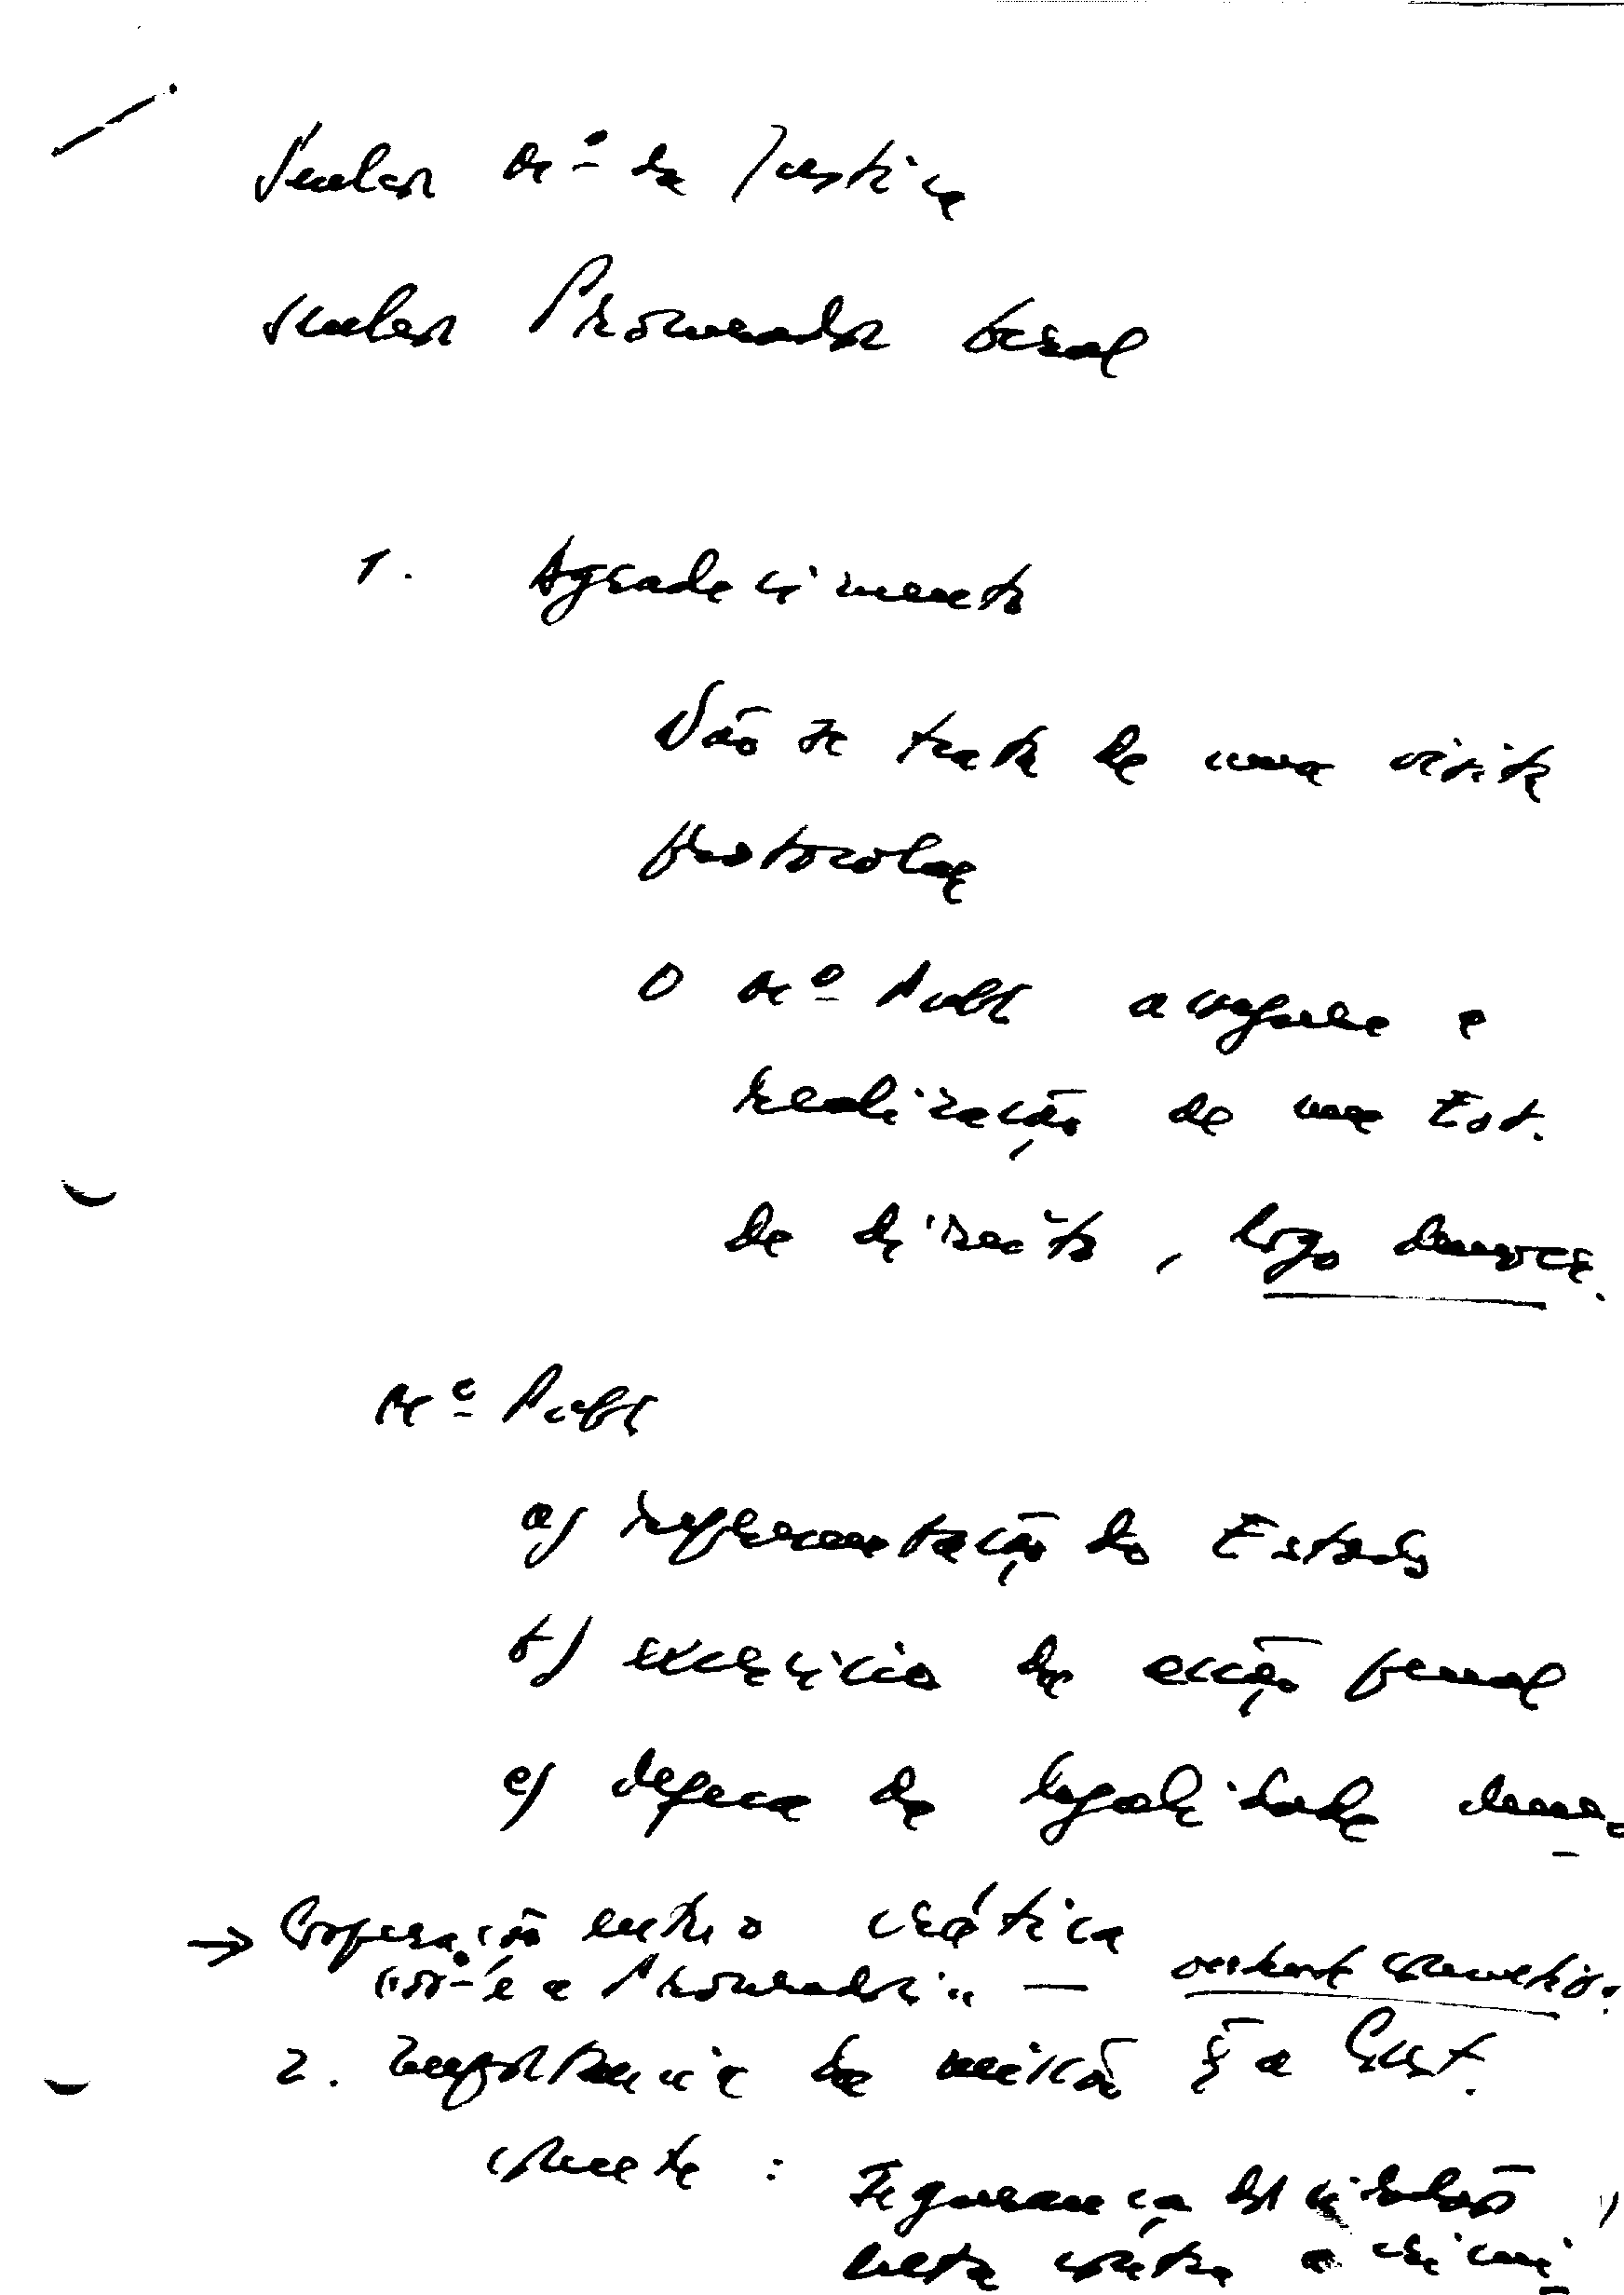 Senhor Mº da Justiça
Senhor Procurador Geral
1. Agradecimento
Não se trata de uma visita
protocolar
O Mº Publ assegura a
realização de um Est.
de direito, logo democ.
Mº Publ
a) representação do Estado
b) exercício da acção penal
c) defesa da legalidade demo
→ Cooperação entre o crática
a Procuradoria —
2. Importância da missão q a Const.
comete : Segurança dos cidadãos,
luta contra a crimi